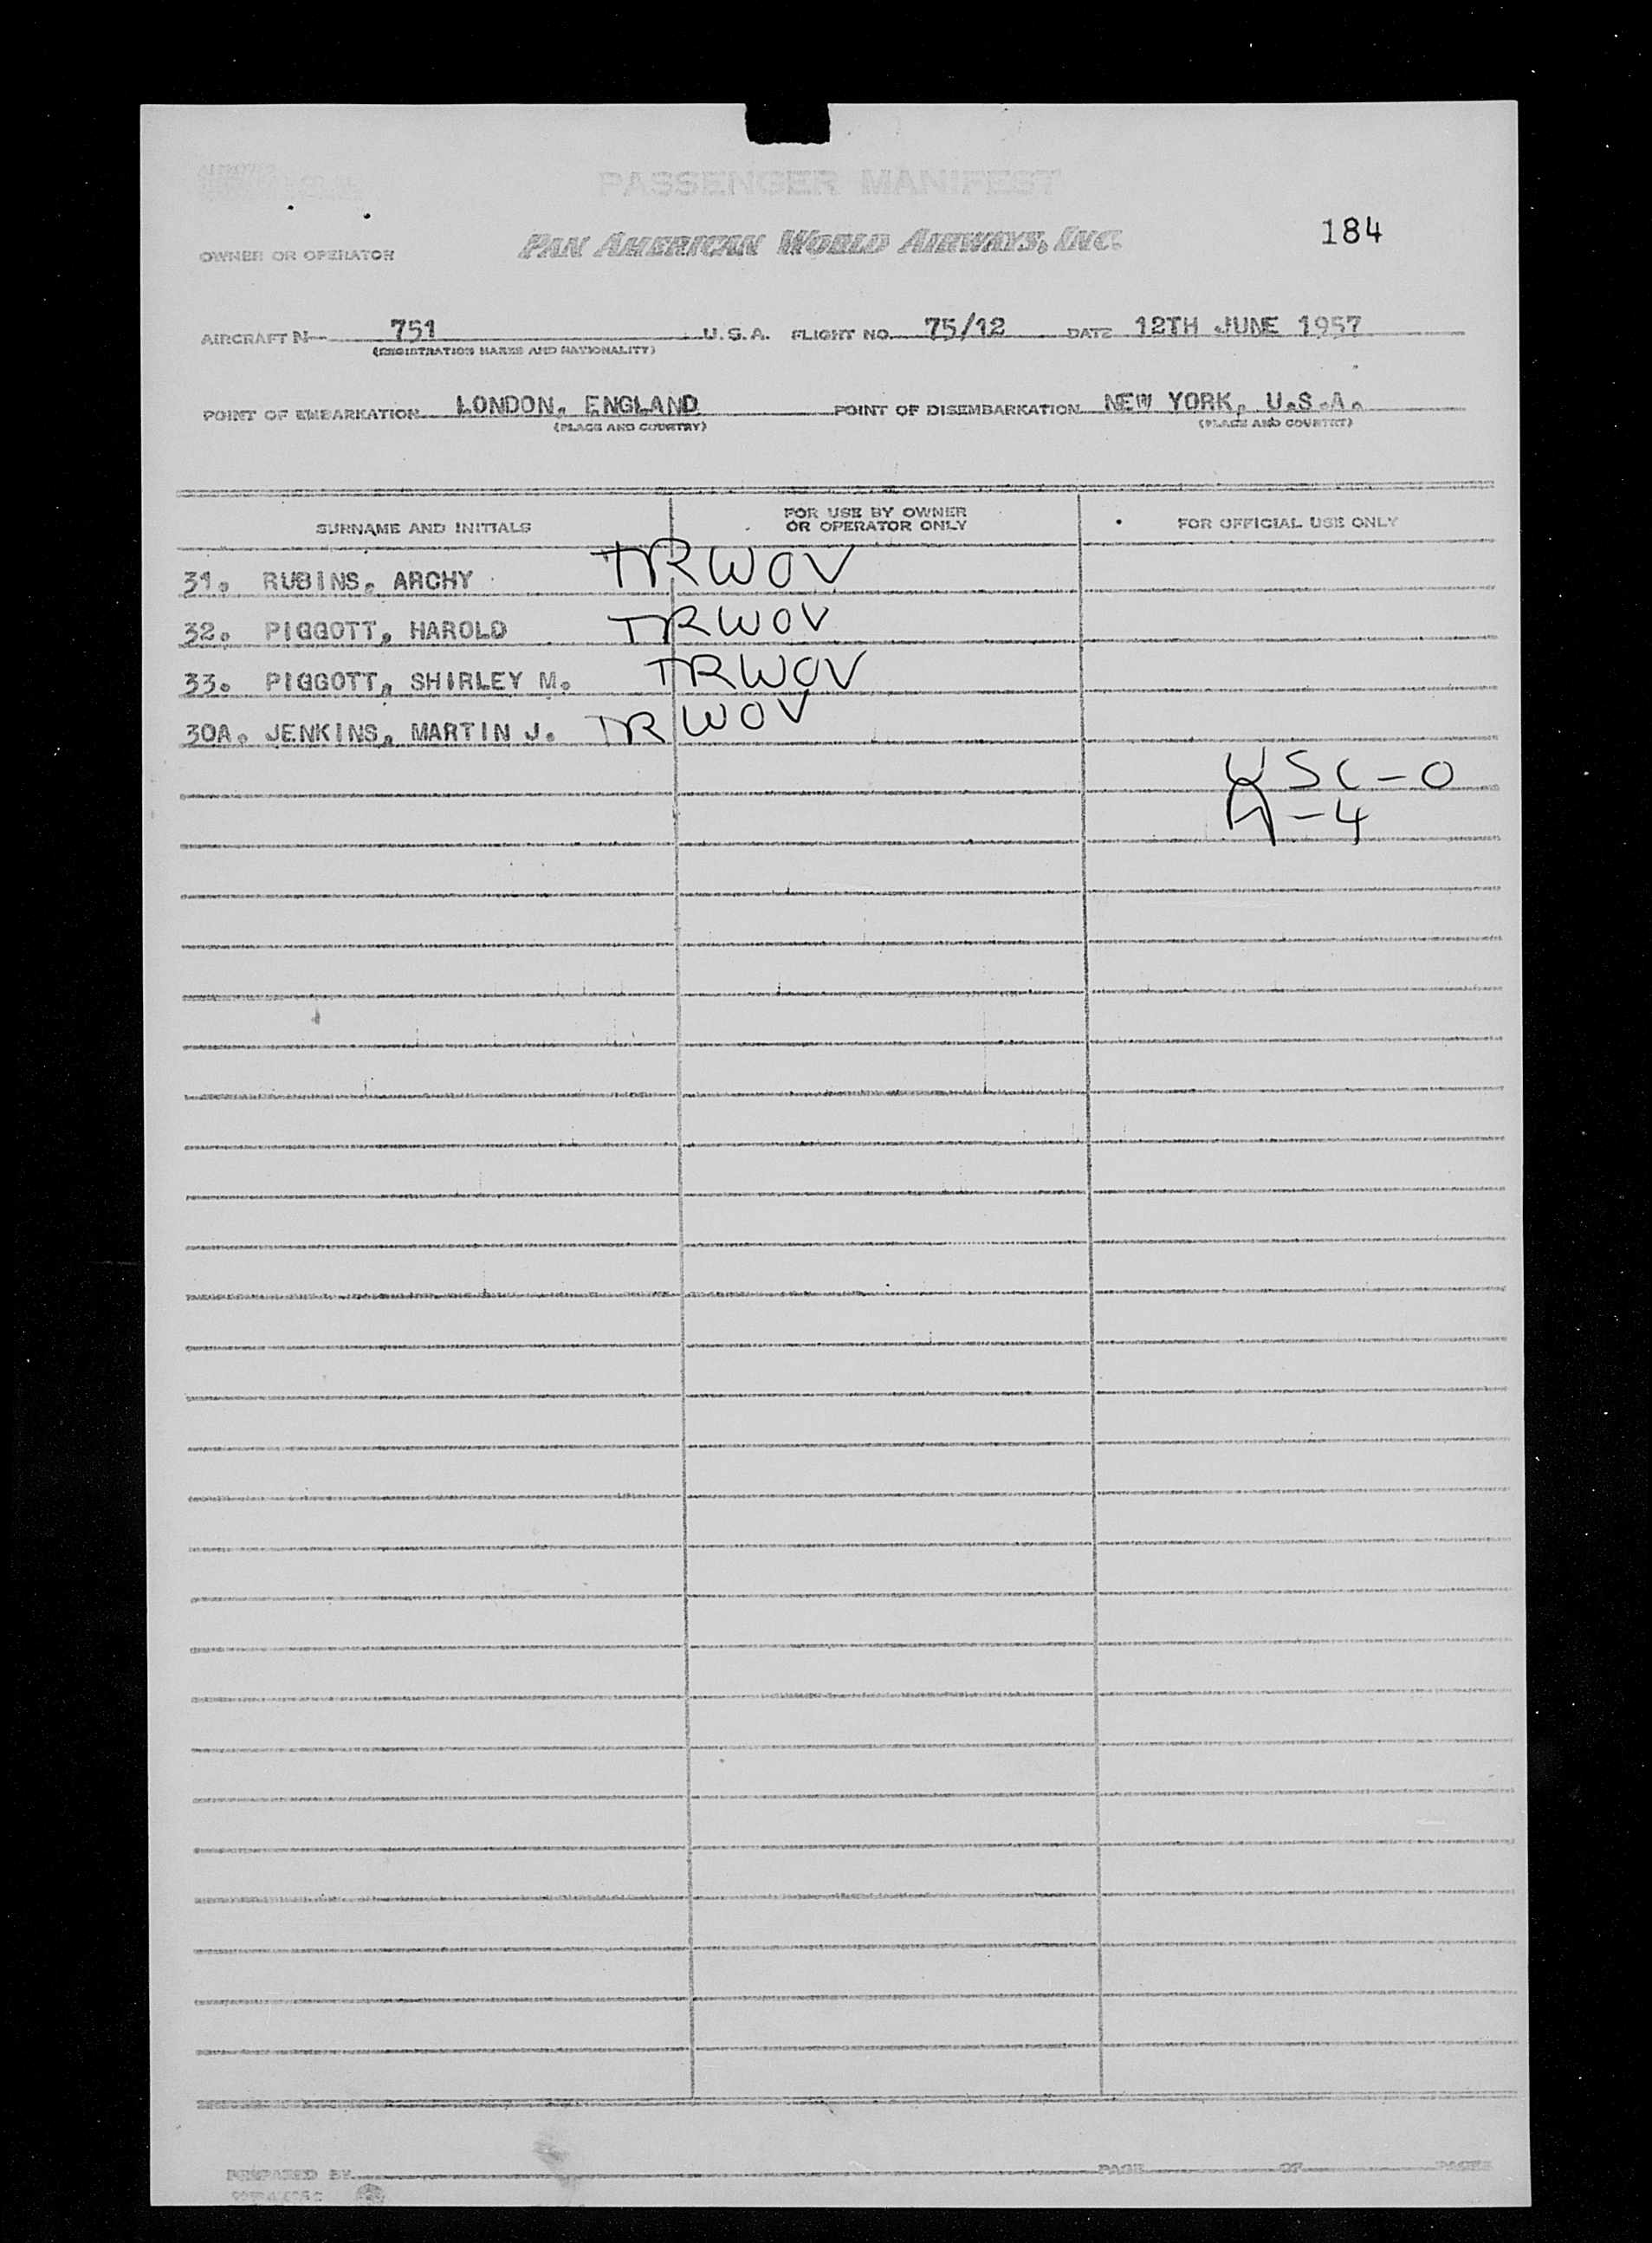 PASSENGER MANIFEST
184
OWNER OR OPERATOR PAN AMERICAN WORLD AIRWAYS, INC.
AIRCRAFT N 751 U.S.A. FLIGHT NO. 75/12 DATE 12TH JUNE 1957
(REGISTRATION MARKS AND NATIONALITY)
POINT OF EMBARKATION LONDON, ENGLAND POINT OF DISEMBARKATION NEW YORK, U.S.A.
(PLACE AND COUNTRY) (PLACE AND COUNTRY)
SURNAME AND INITIALS FOR USE BY OWNER FOR OFFICIAL USE ONLY
OR OPERATOR ONLY
31. RUBINS, ARCHY TRWOV
32. PIGGOTT, HAROLD TRWOV
33. PIGGOTT, SHIRLEY M. TRWOV
30A. JENKINS, MARTIN J. TRWOV
USC-0
A-4
PREPARED BY PAGE OF PAGES